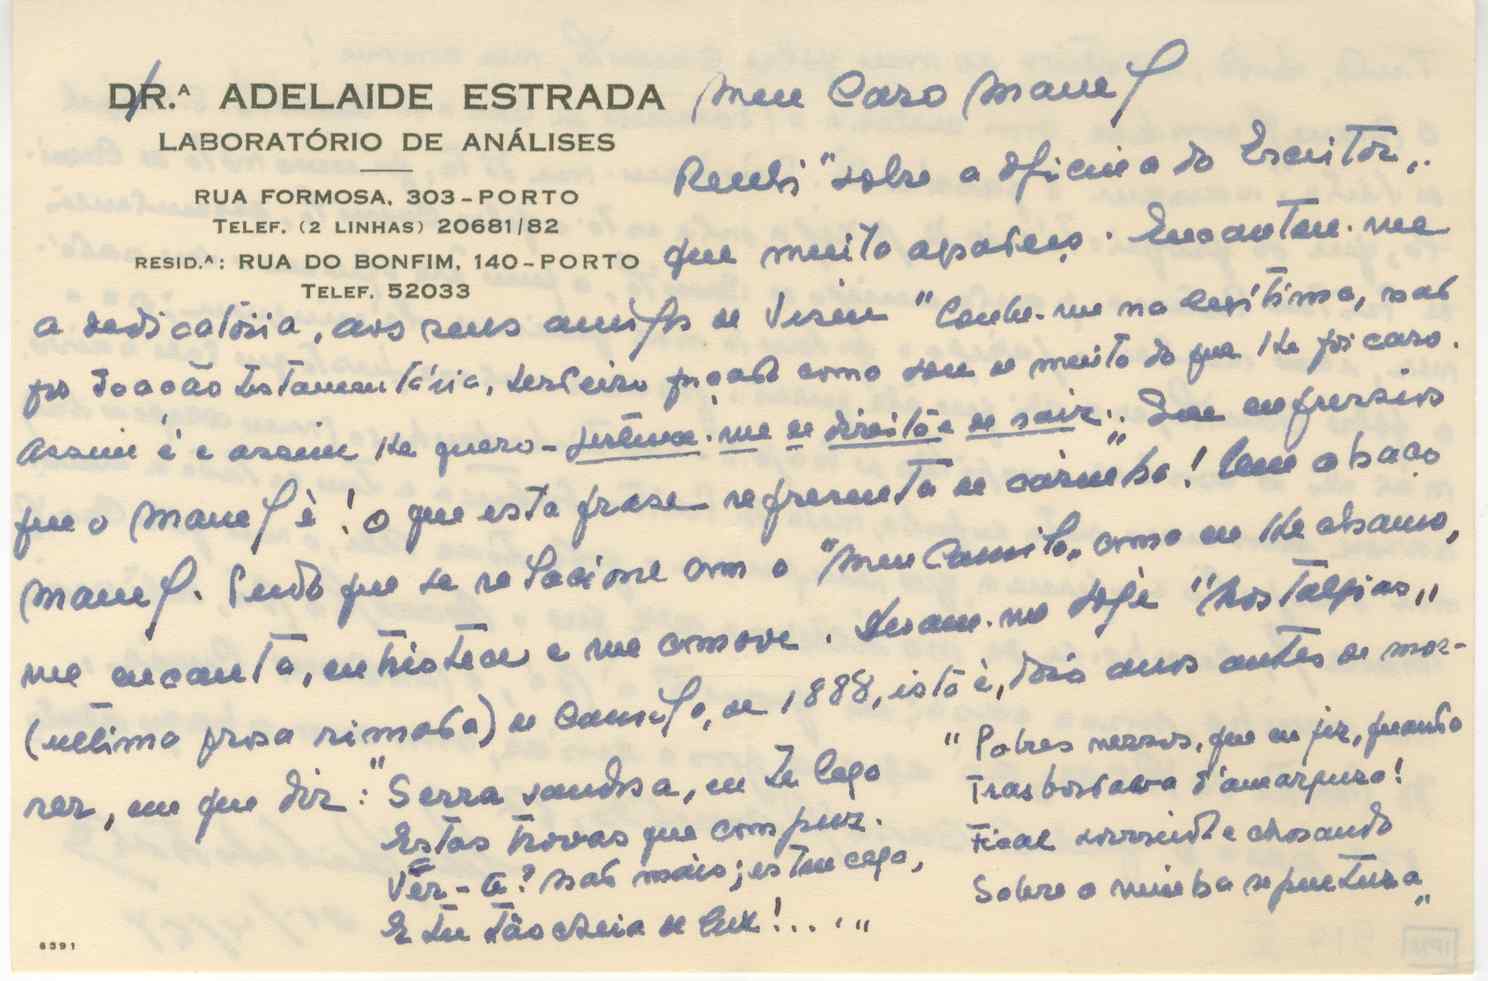 DR.ª ADELAIDE ESTRADA
LABORATÓRIO DE ANÁLISES
RUA FORMOSA, 303-PORTO
TELEF. (2 LINHAS) 20681/82
RESID.ª: RUA DO BONFIM, 140-PORTO
TELEF. 52033
Meu Caro Manuel
Recebi "sobre a oficina do Escritor"
que muito agradeço. Encantou-me
a dedicatória, aos seus amigos de "Coube-me na legítima, não
por doação testamentária, terceiro como sou de muito do que lhe foi caro.
Assim é e assim lhe quero - de direito e de raiz". Que
que o Manuel é! O que esta frase representa de carinho! Um abraço
Manuel. Tudo que se relacione com o "Meu Camilo", como eu lhe chamo,
me encanta, entristece e me comove. hoje "Nostalgias"
(última prosa rimada) de Camilo, de 1888, isto é, dois anos antes de mor-
rer, em que diz: "Serra sandosa, eu te lego
Estas trovas que compuz.
Vêr-te? não mais; estou cego,
E tu tão cheia de luz!...."
"Pobres versos, que eu fiz, quando
Trasbordava d'amargura!
Ficae sorrindo e chorando
Sobre a minha sepultura"
6391